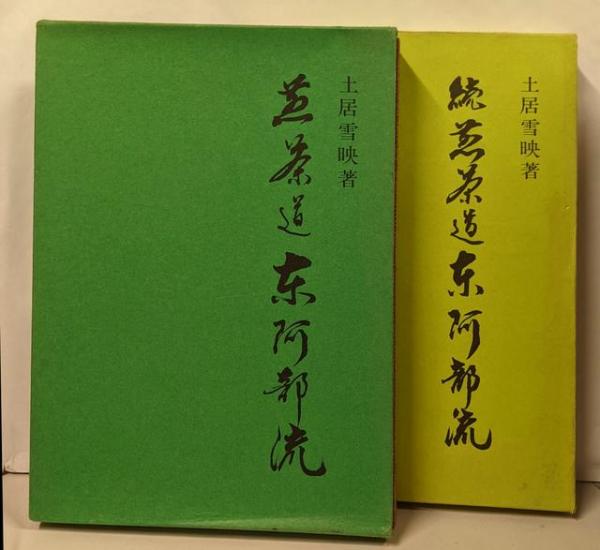 土居雪映著
煎茶道东阿部流
土居雪映著
続煎茶道东阿部流